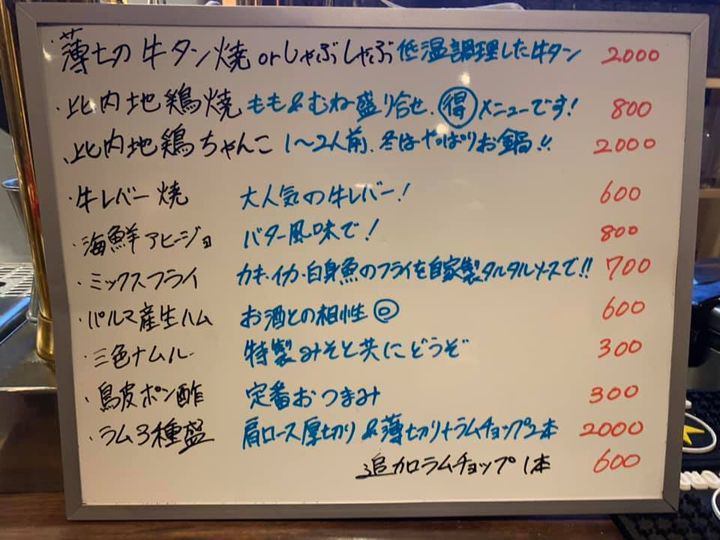 ・薄切の牛タン焼orしゃぶしゃぶ 低温調理した牛タン 2000
・比内地鶏焼 もも&むね盛り合せ、得メニューです! 800
・比内地鶏ちゃんこ 1〜2人前、冬はやっぱりお鍋!! 2000
・牛レバー焼 大人気の牛レバー! 600
・海鮮アヒージョ バター風味で! 800
・ミックスフライ カキ・イカ・白身魚のフライを自家製タルタルソースで!! 700
・パルマ産生ハム お酒との相性◎ 600
・三色ナムル 特製みそと共にどうぞ 300
・鳥皮ポン酢 定番おつまみ 300
・ラム3種盛 肩ロース厚切り&薄切り+ラムチョップ2本 2000
追加ラムチョップ1本 600